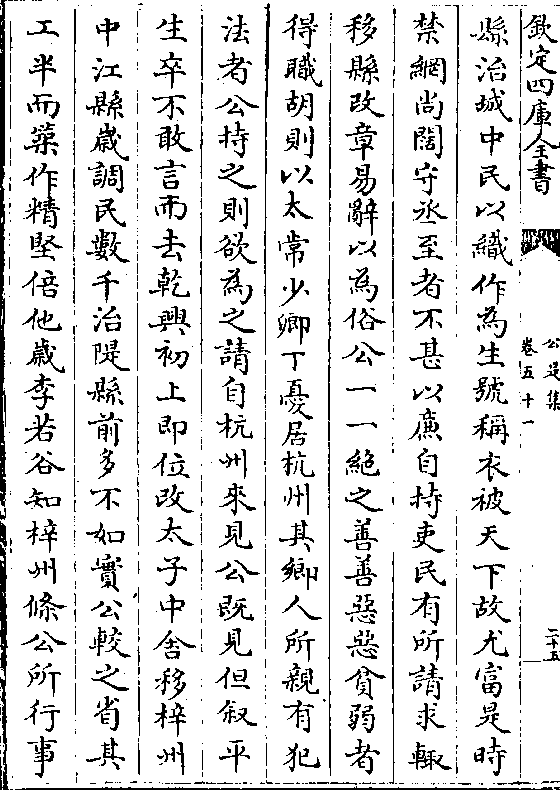 欽定四庫全書
公是集
卷五十一
二十五
縣治城中民以織作為生號稱衣被天下故尤富是時
禁網尚闊守丞至者不甚以廉自持吏民有所請求輙
移縣改章易辭以為俗公一一絕之善善惡惡貧弱者
得職胡則以太常少卿丁憂居杭州其鄉人所親有犯
法者公持之則欲為之請自杭州來見公既見但叙平
生卒不敢言而去乾興初上即位改太子中舍移梓州
中江縣歲調民數千治隄縣前多不如實公較之省其
工半而築作精堅倍他歲李若谷知梓州條公所行事